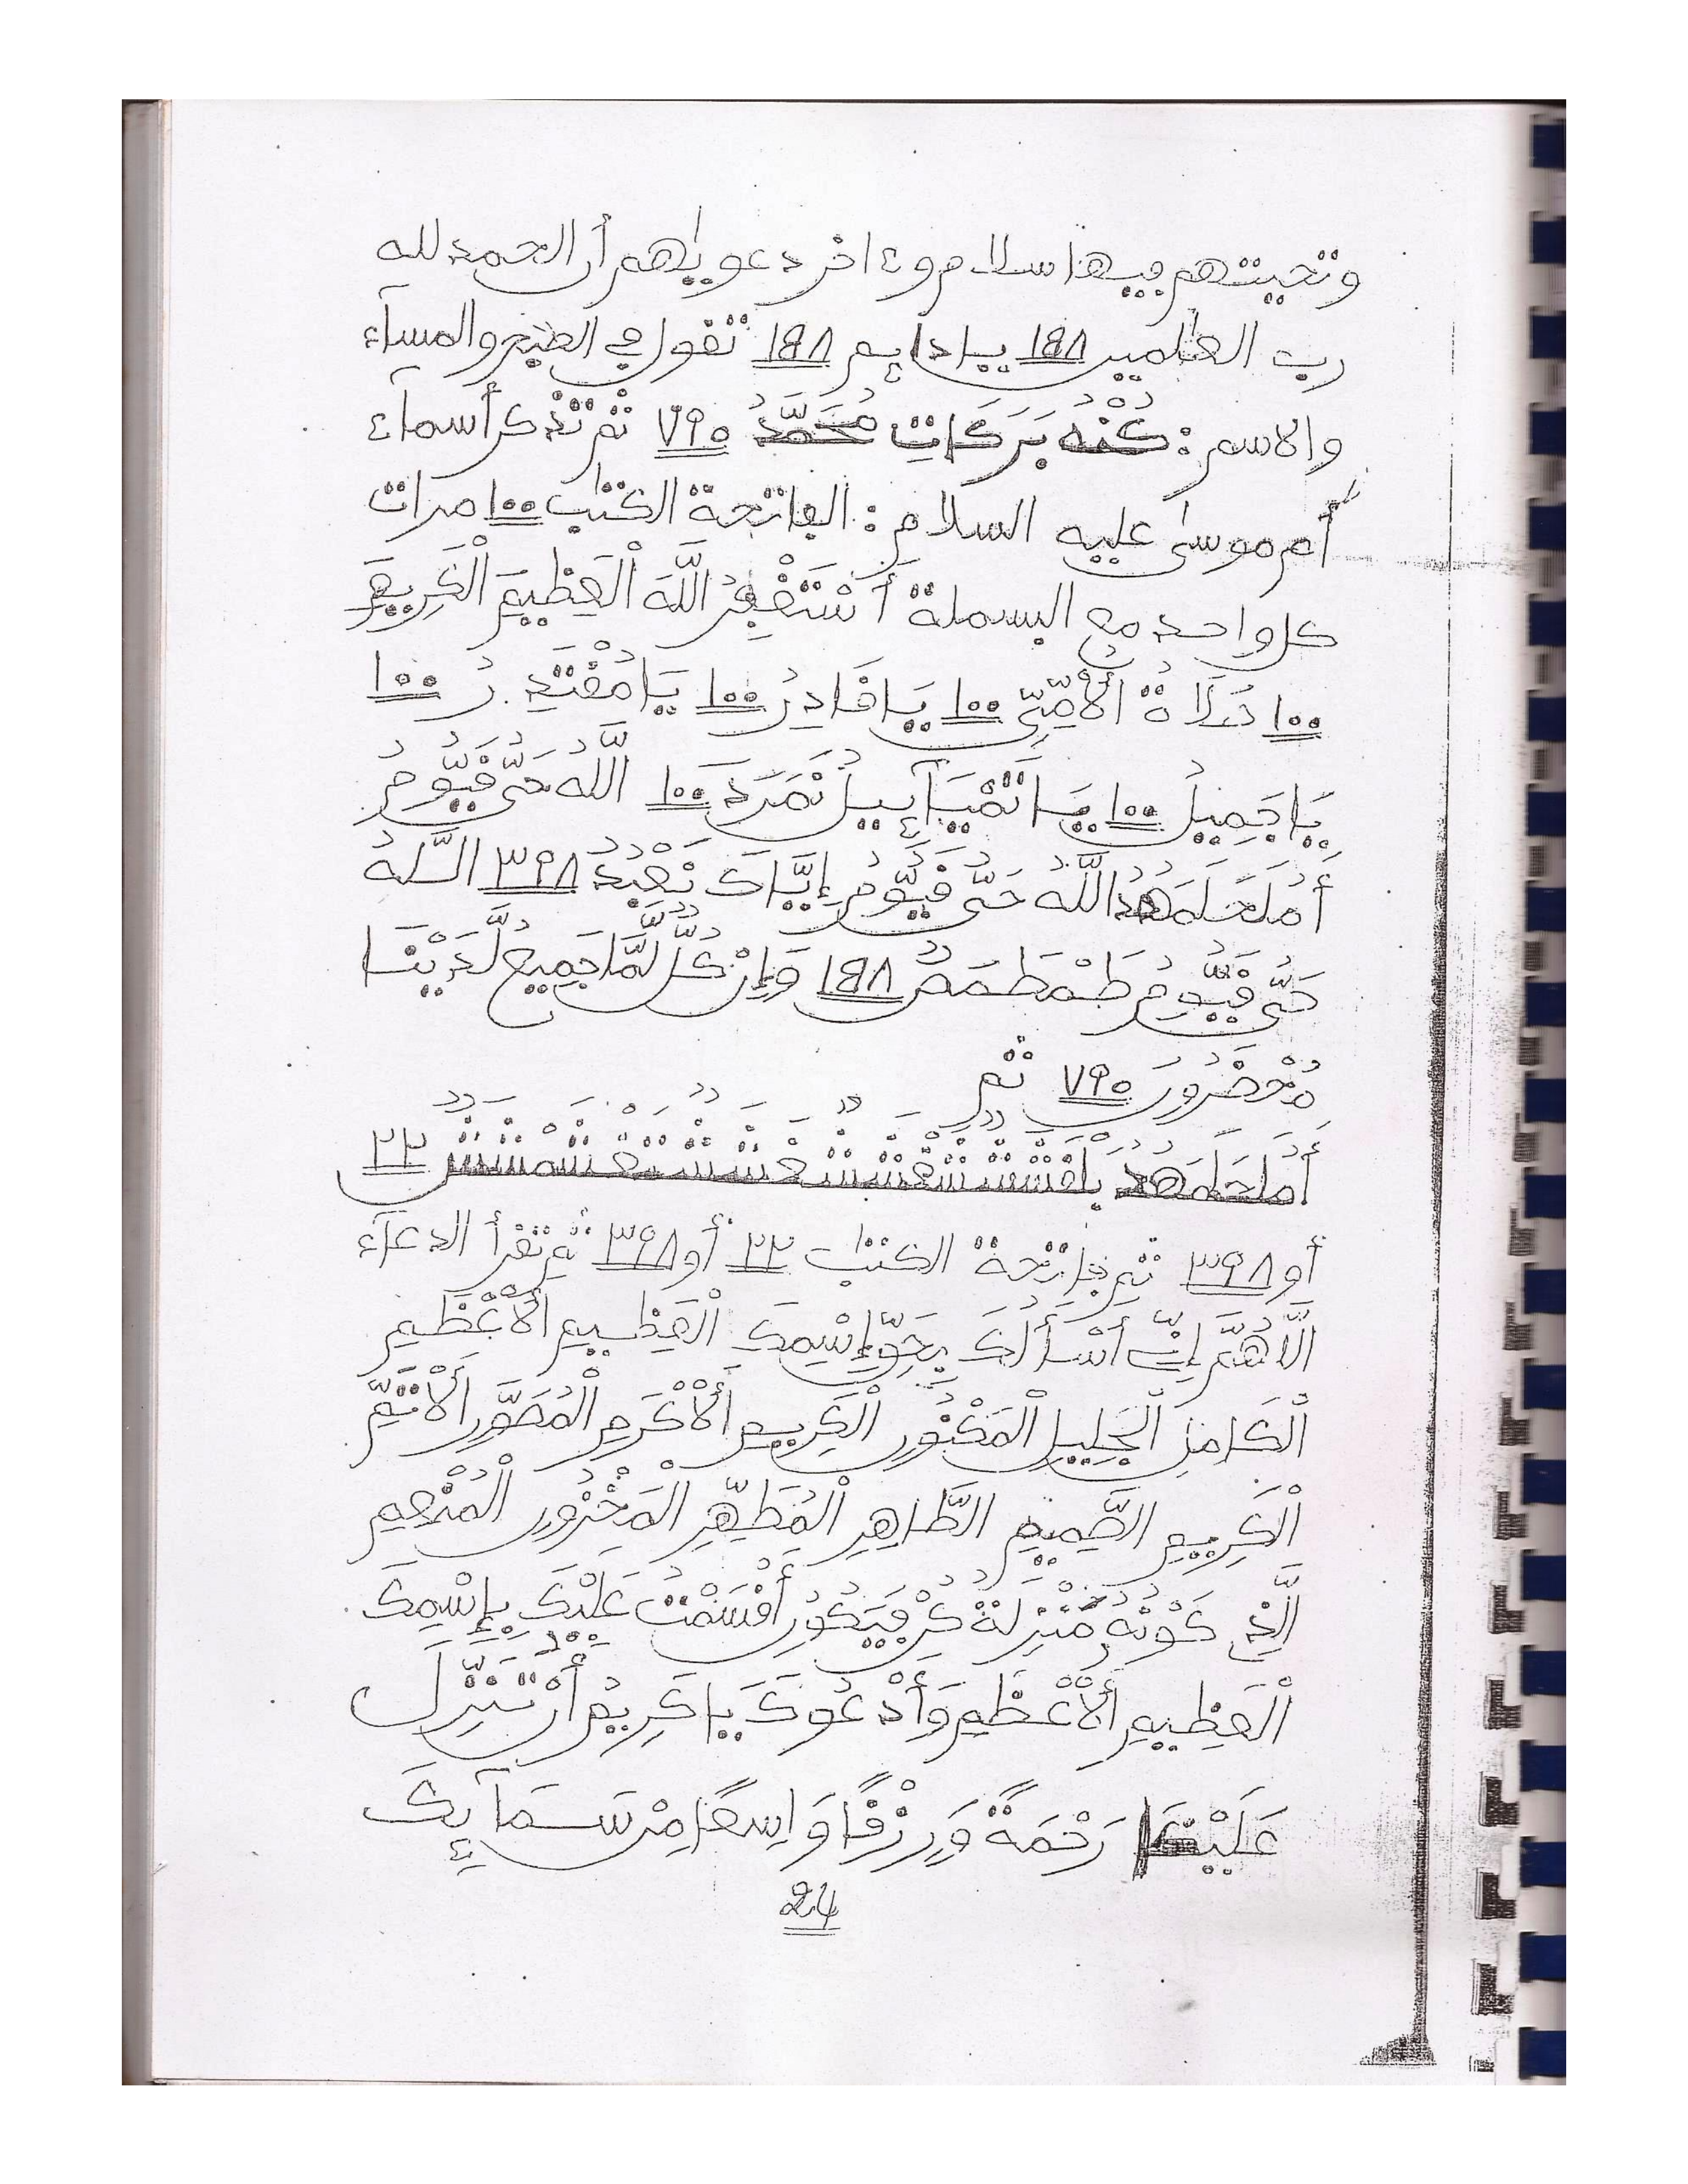 وتحيتهم فيها سلام وءاخر دعويهم أن الحمد لله
رب العلمين ١٩٨ يا دايم ١٩٨ تقول في الصبح والمساء
والاسم : كُنْهُ بَرَكَاتِ مُحَمَّدُ ٧٩٥ ثم تذكر أسماء
أم موسى عليه السلام : الفاتحة الكتب ١٠٠ مرات
كل واحد مع البسملة أَسْتَغْفِرُ اللَّهَ الْعَظِيمَ الْكَرِيمَ
١٠٠ صَلَاةُ الْأُمِّيِّ ١٠٠ يَا قَادِرُ ١٠٠ يَا مُقْتَدِرُ ١٠٠
يَا جَمِيلُ ١٠٠ يَا تَمْيَآئِيلُ نَمَرَدَ ١٠٠ اللَّهُ حَيٌّ قَيُّومُ
أَمْلَحَلَمَهُدُ اللَّهُ حَيٌّ قَيُّومُ إِيَّاكَ نَعْبُدُ ٣٩٨ اللَّهُ
حَيٌّ قَيُّومُ طَمْطَمَصٌ ١٩٨ وَإِن كُلٌّ لَّمَّا جَمِيعٌ لَّدَيْنَا
مُحْضَرُونَ ٧٩٥ ثم
٢٢
أو ٣٩٨ ثم فاتحة الكتب ٢٢ أو ٣٩٨ ثم تقرأ الدعاء
اللَّاهُمَّ إِنِّي أَسْأَلُكَ بِحَقِّ إِسْمِكَ الْعَظِيمِ الْأَعْظَمِ
الْكَامِلِ الْجَلِيلِ الْمَكْنُونِ الْكَرِيمِ الْأَكْرَمِ الْمُصَوَّرِ الْأَتَمِّ
الْكَرِيمِ الصَّمِيمِ الطَّاهِرِ الْمُطَهَّرِ الْمَخْزُونِ الْمُنْعِمِ
الَّذِي كَوْنُهُ مَنْزِلَةُ كُنْ فَيَكُونُ أَقْسَمْتُ عَلَيْكَ بِإِسْمِكَ
الْعَظِيمِ الْأَعْظَمِ وَأَدْعُوكَ يَا كَرِيمُ أَنْ تُنَزِّلَ
عَلَيْنَا رَحْمَةً وَرِزْقًا وَاسِعًا مِنْ سَمَآئِكَ
24